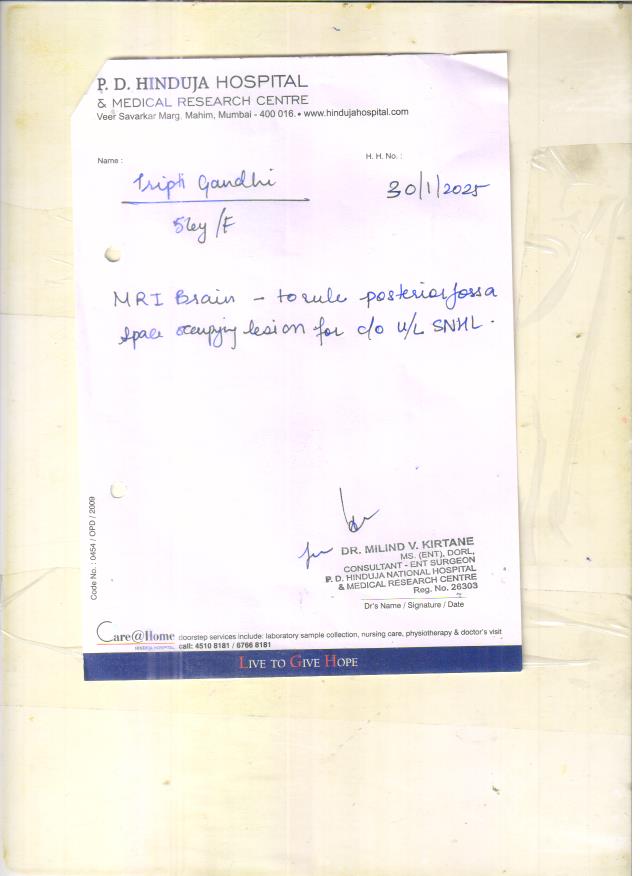 P. D. HINDUJA HOSPITAL
& MEDICAL RESEARCH CENTRE
Veer Savarkar Marg, Mahim, Mumbai - 400 016. • www.hindujahospital.com
Name :
H. H. No. :
Tripti Gandhi
30/1/2025
y/F
MRI Brain – to rule posterior fossa
space occupying lesion for c/o U/L SNHL.
for
DR. MILIND V. KIRTANE
MS. (ENT), DORL,
CONSULTANT - ENT SURGEON
P. D. HINDUJA NATIONAL HOSPITAL
& MEDICAL RESEARCH CENTRE
Reg. No. 26303
Dr's Name / Signature / Date
Code No. : 0454 / OPD / 2009
Care@Home doorstep services include: laboratory sample collection, nursing care, physiotherapy & doctor's visit
HINDUJA HOSPITAL call: 4510 8181 / 6766 8181
LIVE TO GIVE HOPE